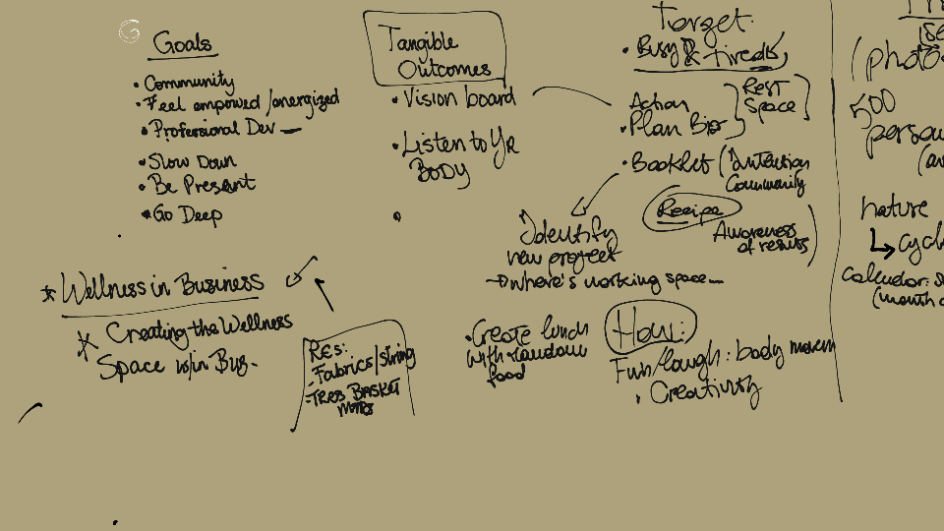 Goals
• Community
• Feel empowered/energized
• Professional Dev
• Slow Down
• Be Present
• Go Deep
* Wellness in Business
* Creating the Wellness
Space w/in Bus.
Tangible
Outcomes
• Vision board
• Listen to Yr
BODY
RES:
- Fabrics/string
BASKET
Target:
• Busy & tired
Action
• Plan
REST
Space
• Booklet (Intention
Community
Recipe
Awareness
of results
Identify
new project
→ where's working space
• Create lunch
with random
food
How:
Fun/laugh: body movem
• Creativity
(photo
500
persona
nature
↳ cycl
calendar: s
(month o